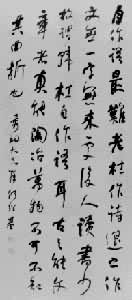 自作語最難老杜作詩退之作
文無一字無來處後人讀書少
故謂韓杜自作語耳古之能文
章者真能陶冶萬物不可不知
其曲折也